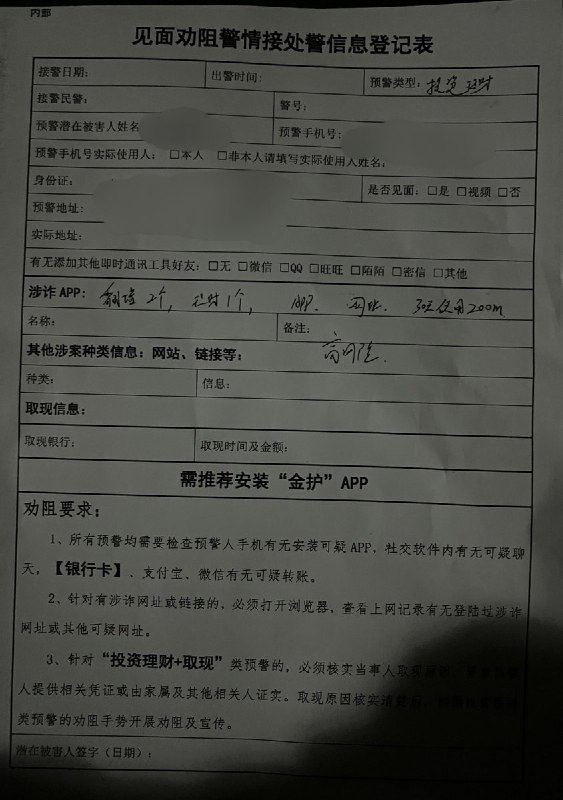 内部
见面劝阻警情接处警信息登记表
接警日期： 出警时间： 预警类型：投资理财
接警民警： 警号：
预警潜在被害人姓名 预警手机号：
预警手机号实际使用人：□本人 □非本人请填写实际使用人姓名：
身份证： 是否见面：□是□视频□否
预警地址：
实际地址：
有无添加其他即时通讯工具好友：□无□微信□QQ□旺旺□陌陌□密信□其他
涉诈APP：翻墙2个，理财1个， APP. 网址. 使用200m
名称： 备注：
高风险.
其他涉案种类信息：网站、链接等：
种类： 信息：
取现信息：
取现银行： 取现时间及金额：
需推荐安装“金护”APP
劝阻要求：
1、所有预警均需要检查预警人手机有无安装可疑APP，社交软件内有无可疑聊
天，【银行卡】、支付宝、微信有无可疑转账。
2、针对有涉诈网址或链接的，必须打开浏览器，查看上网记录有无登陆过涉诈
网址或其他可疑网址。
3、针对“投资理财+取现”类预警的，必须核实当事人取现
人提供相关凭证或由家属及其他相关人证实。取现原因核实
类预警的劝阻手势开展劝阻及宣传。
潜在被害人签字（日期）：